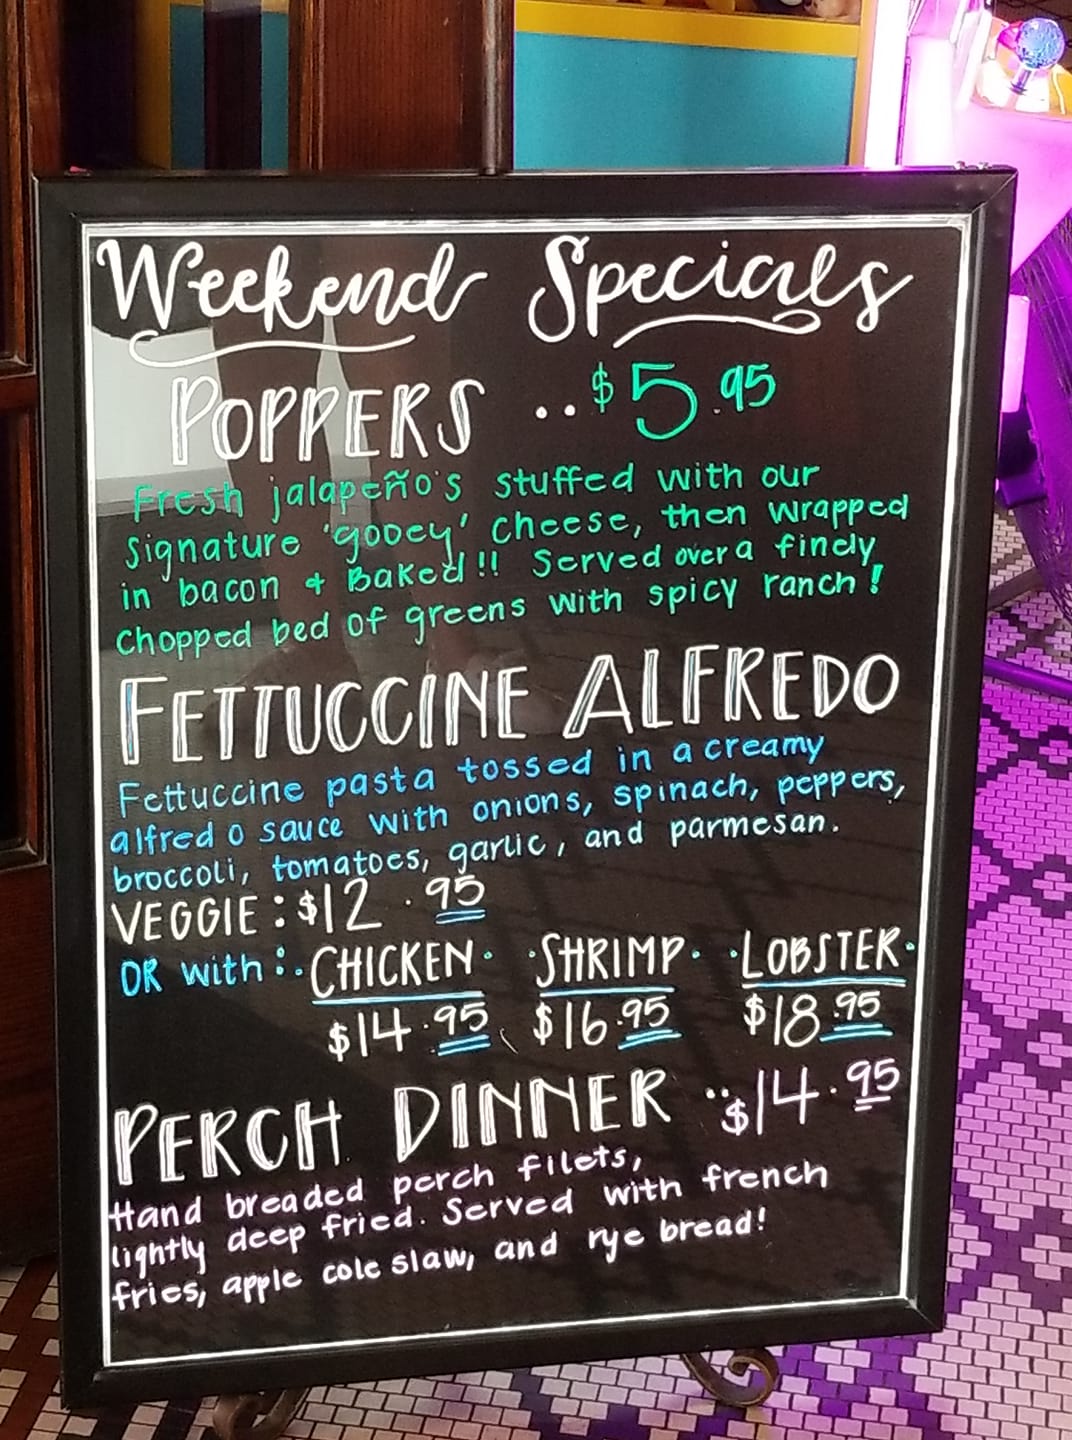 Weekend Specials
POPPERS ..$5.95
Fresh jalapeño's stuffed with our
Signature 'gooey' cheese, then wrapped
in bacon + Baked!! Served over a finely
chopped bed of greens with spicy ranch!
FETTUCCINE ALFREDO
Fettuccine pasta tossed in a creamy
alfredo sauce with onions, spinach, peppers,
broccoli, tomatoes, garlic, and parmesan.
VEGGIE: $12.95
OR with: ·CHICKEN· ·SHRIMP· ·LOBSTER·
$14.95 $16.95 $18.95
PERCH DINNER ..$14.95
Hand breaded perch filets,
lightly deep fried. Served with french
fries, apple cole slaw, and rye bread!